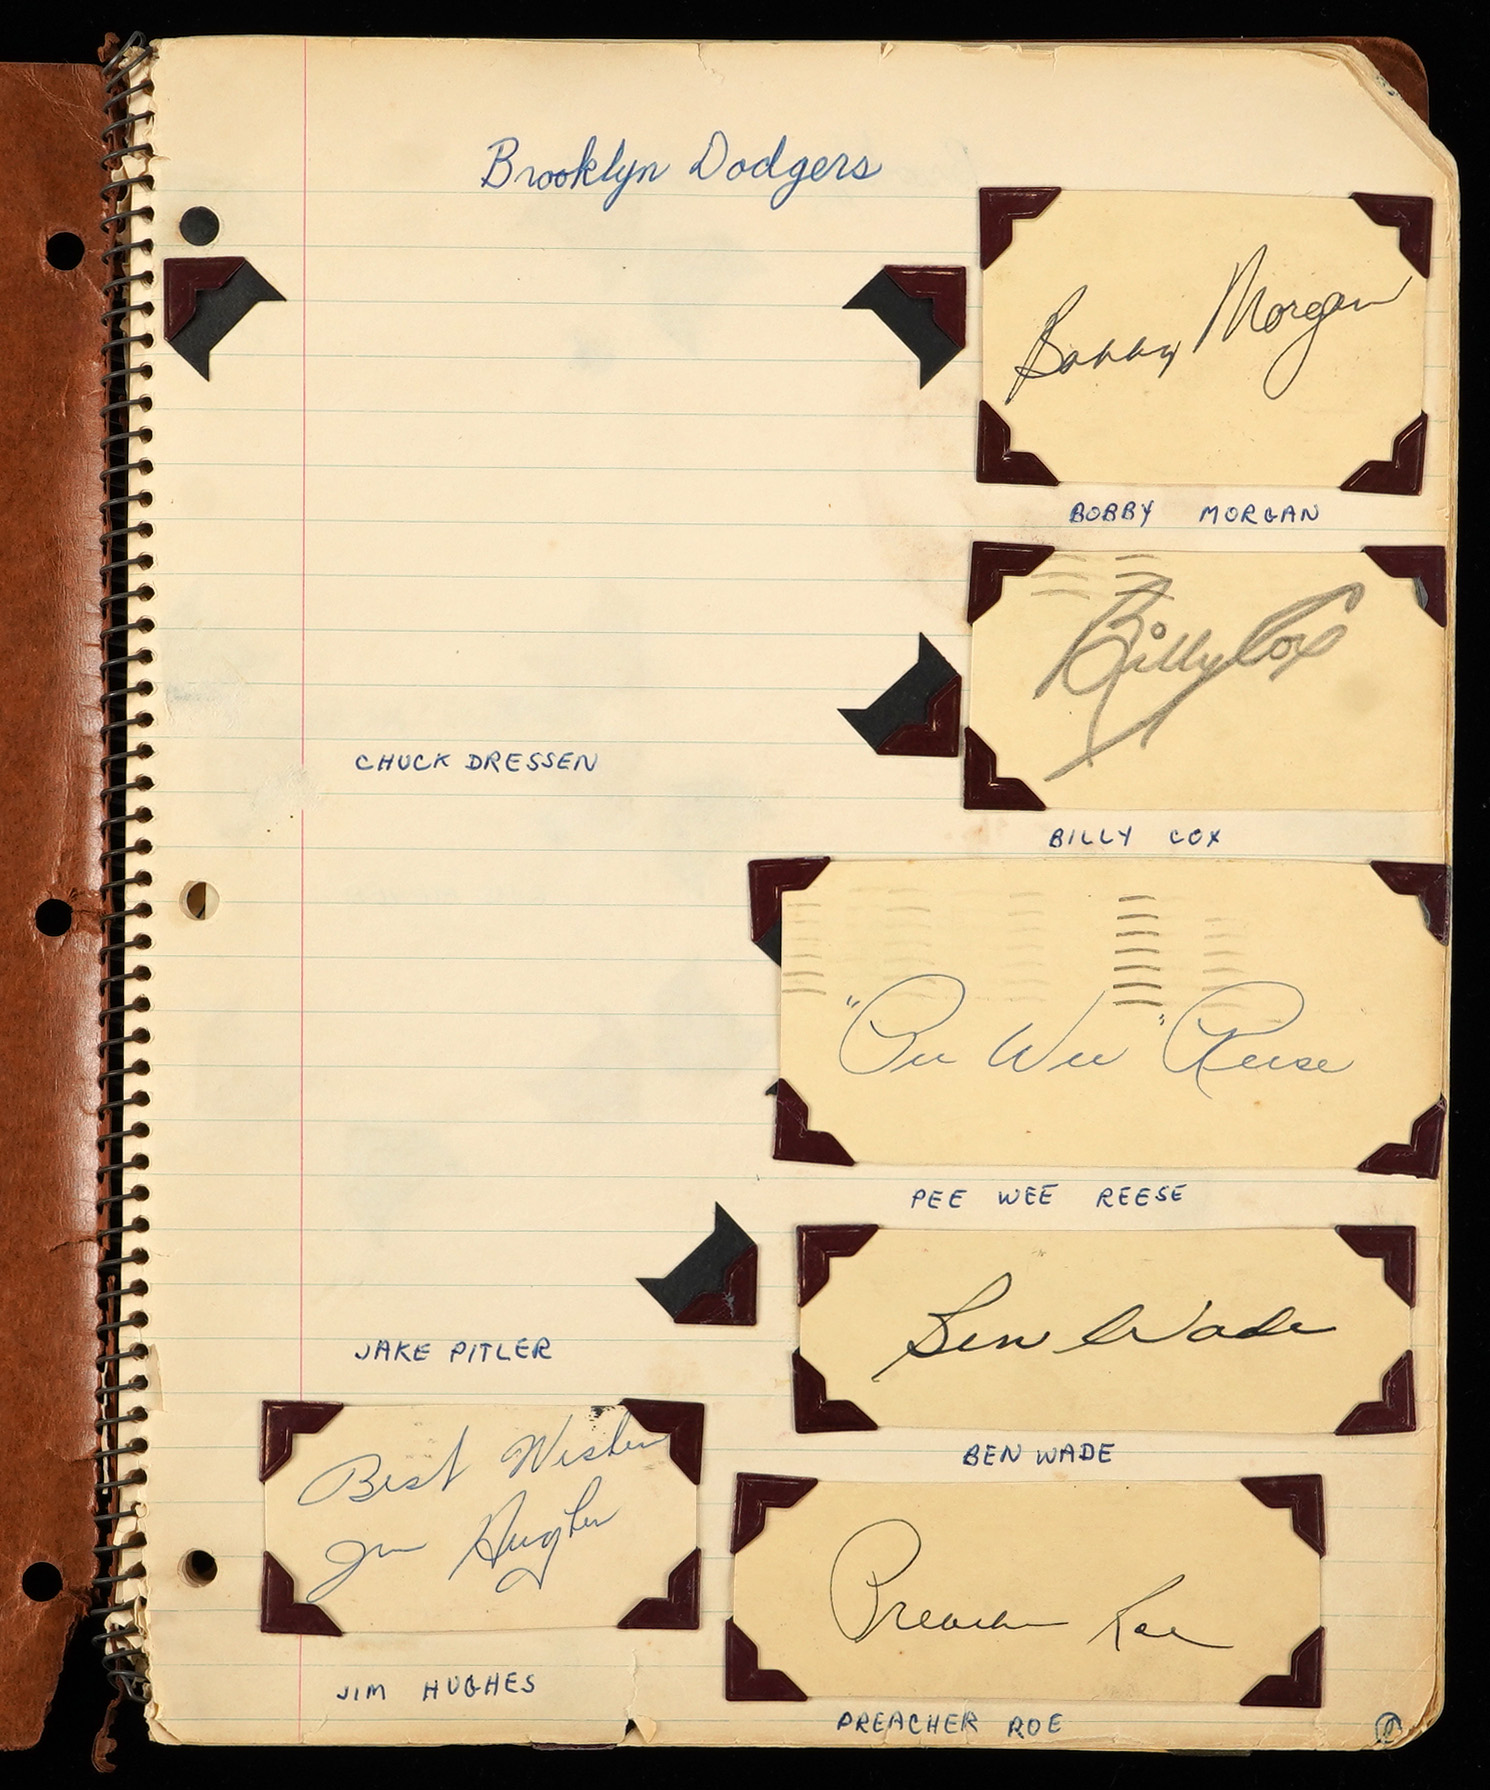 Brooklyn Dodgers
Bobby Morgan
BOBBY MORGAN
Billy Cox
CHUCK DRESSEN
BILLY COX
"Pee Wee" Reese
PEE WEE REESE
Ben Wade
JAKE PITLER
BEN WADE
Best Wishes
Jim Hughes
JIM HUGHES
Preacher Roe
PREACHER ROE